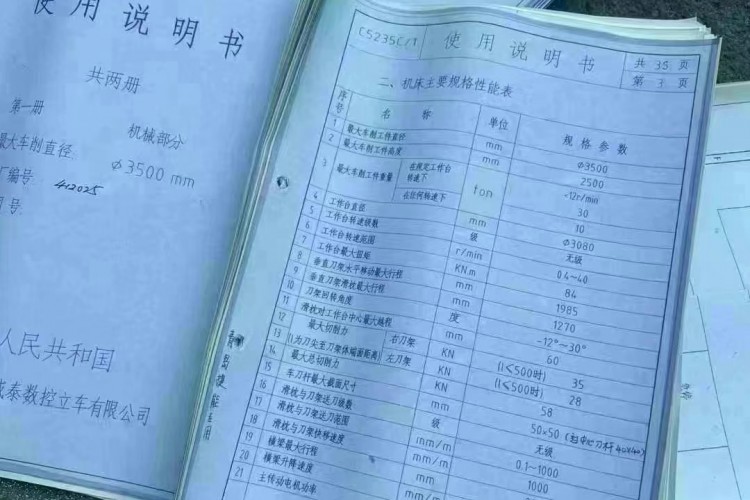 使用说明书
共两册
第一册 机械部分
最大车削直径 φ3500 mm
编号 412025
号
人民共和国
泰数控立车有限公司
C5235C/1 使用说明书 共 35 页
第 3 页
二、机床主要规格性能表
序号 名称 单位 规格参数
1 最大车削工件直径 mm φ3500
2 最大车削工件高度 mm 2500
3 最大车削工件重量 在规定工作台转速下 ton ~12r/min 30
在任何转速下 10
4 工作台直径 mm φ3080
5 工作台转速级数 级 无级
6 工作台转速范围 r/min 0.4~40
7 工作台最大扭矩 KN.m 84
8 垂直刀架水平移动最大行程 mm 1985
9 垂直刀架滑枕最大行程 mm 1270
10 刀架回转角度 度 -12°~30°
11 滑枕对工作台中心最大越程 mm 60
12 最大切削力 右刀架 KN (l≤500时) 35
13 (l为刀尖至刀架体端面距离) 左刀架 KN (l≤500时) 28
14 最大总切削力 KN 58
15 车刀杆最大截面尺寸 mm 50×50 (40×40)
16 滑枕与刀架送刀级数 级 无级
17 滑枕与刀架送刀范围 mm/m 0.1~1000
18 滑枕与刀架快移速度 mm/m 1000
19 横梁最大行程 mm
20 横梁升降速度 mm/m
21 主传动电机功率